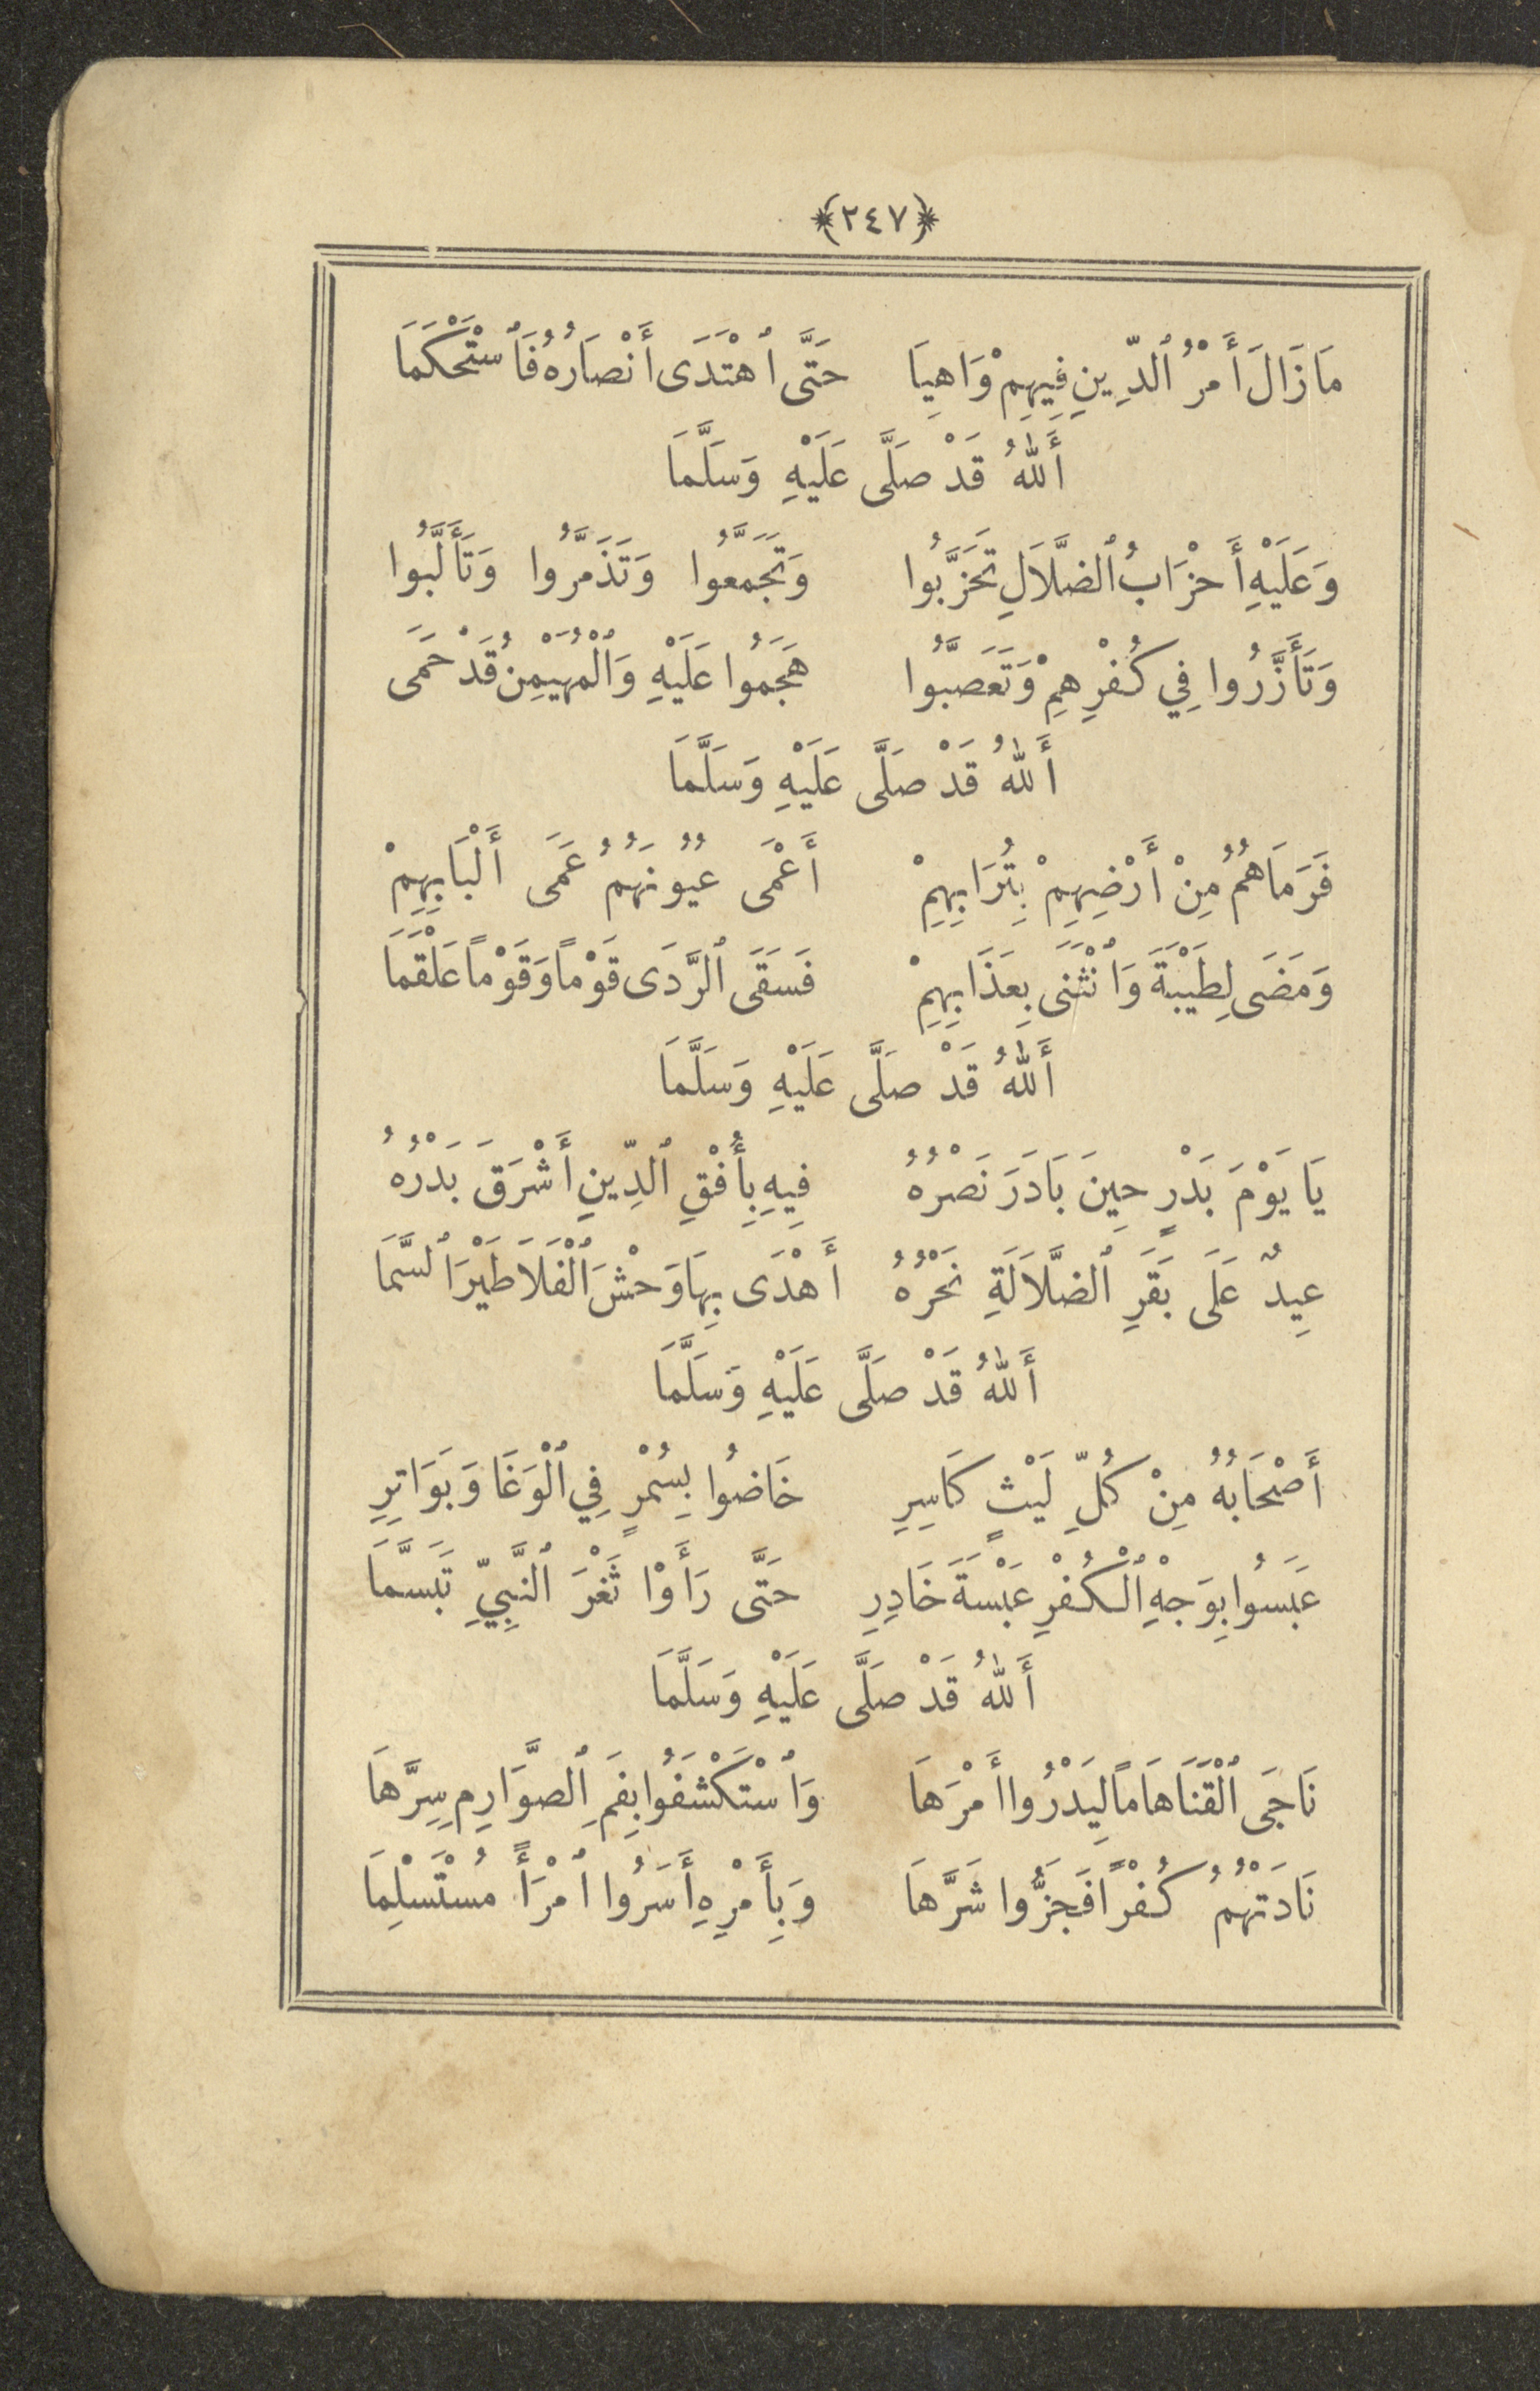 ﴿٢٤٧﴾
مَا زَالَ أَمْرُ ٱلدِّينِ فِيهِمْ وَاهِيَا حَتَّى ٱهْتَدَى أَنْصَارُهُ فَٱسْتَحْكَمَا
أَللهُ قَدْ صَلَّى عَلَيْهِ وَسَلَّمَا
وَعَلَيْهِ أَحْزَابُ ٱلضَّلاَلِ تَحَزَّبُوا وَتَجَمَّعُوا وَتَذَمَّرُوا وَتَأَلَّبُوا
وَتَأَزَّرُوا فِي كُفْرِهِمْ وَتَعَصَّبُوا هَجَمُوا عَلَيْهِ وَٱلْمُهَيْمِنُ قَدْ حَمَى
أَللهُ قَدْ صَلَّى عَلَيْهِ وَسَلَّمَا
فَرَمَاهُمُ مِنْ أَرْضِهِمْ بِتُرَابِهِمْ أَعْمَى عُيُونَهُمُ عَمَى أَلْبَابِهِمْ
وَمَضَى لِطَيْبَةَ وَٱنْثَنَى بِعَذَابِهِمْ فَسَقَى ٱلرَّدَى قَوْماً وَقَوْماً عَلْقَمَا
أَللهُ قَدْ صَلَّى عَلَيْهِ وَسَلَّمَا
يَا يَوْمَ بَدْرٍ حِينَ بَادَرَ نَصْرُهُ فِيهِ بِأُفْقِ ٱلدِّينِ أَشْرَقَ بَدْرُهُ
عِيدٌ عَلَى بَقَرِ ٱلضَّلاَلَةِ نَحْرُهُ أَهْدَى بِهَا وَحْشَ ٱلْفَلاَ طَيْرَ ٱلسَّمَا
أَللهُ قَدْ صَلَّى عَلَيْهِ وَسَلَّمَا
أَصْحَابُهُ مِنْ كُلِّ لَيْثٍ كَاسِرِ خَاضُوا بِسُمْرٍ فِي ٱلْوَغَا وَبَوَاتِرِ
عَبَسُوا بِوَجْهِ ٱلْكُفْرِ عَبْسَةَ خَادِرِ حَتَّى رَأَوْا ثَغْرَ ٱلنَّبِيِّ تَبَسَّمَا
أَللهُ قَدْ صَلَّى عَلَيْهِ وَسَلَّمَا
نَاجَى ٱلْقَنَا هَاماً لِيَدْرُوا أَمْرَهَا وَٱسْتَكْشَفُوا بِفَمِ ٱلصَّوَارِمِ سِرَّهَا
نَادَتْهُمُ كُفْراً فَجَزُّوا شَرَّهَا وَبِأَمْرِهِ أَسَرُوا ٱمْرَأً مُسْتَسْلِمَا